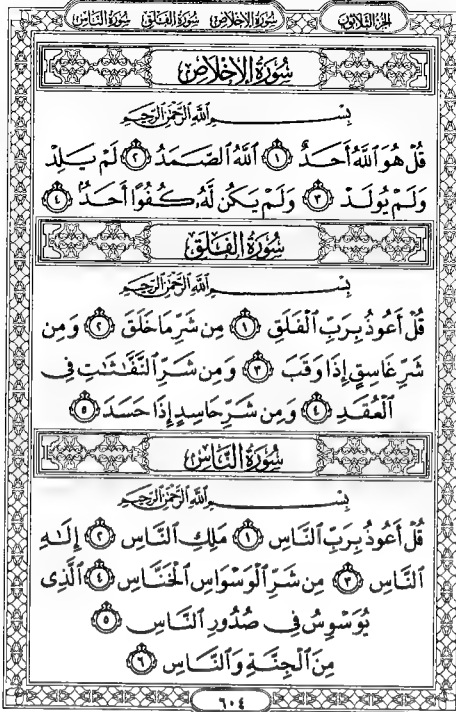 الجزء الثلاثون سُورَةُ الإِخْلَاصِ سُورَةُ الفَلَقِ سُورَةُ النَّاسِ
سُورَةُ الإِخْلَاصِ
بِسْمِ اللَّهِ الرَّحْمَٰنِ الرَّحِيمِ
قُلْ هُوَ ٱللَّهُ أَحَدٌ ١ ٱللَّهُ ٱلصَّمَدُ ٢ لَمْ يَلِدْ
وَلَمْ يُولَدْ ٣ وَلَمْ يَكُن لَّهُۥ كُفُوًا أَحَدٌۢ ٤
سُورَةُ الفَلَقِ
بِسْمِ اللَّهِ الرَّحْمَٰنِ الرَّحِيمِ
قُلْ أَعُوذُ بِرَبِّ ٱلْفَلَقِ ١ مِن شَرِّ مَا خَلَقَ ٢ وَمِن
شَرِّ غَاسِقٍ إِذَا وَقَبَ ٣ وَمِن شَرِّ ٱلنَّفَّٰثَٰتِ فِى
ٱلْعُقَدِ ٤ وَمِن شَرِّ حَاسِدٍ إِذَا حَسَدَ ٥
سُورَةُ النَّاسِ
بِسْمِ اللَّهِ الرَّحْمَٰنِ الرَّحِيمِ
قُلْ أَعُوذُ بِرَبِّ ٱلنَّاسِ ١ مَلِكِ ٱلنَّاسِ ٢ إِلَٰهِ
ٱلنَّاسِ ٣ مِن شَرِّ ٱلْوَسْوَاسِ ٱلْخَنَّاسِ ٤ ٱلَّذِى
يُوَسْوِسُ فِى صُدُورِ ٱلنَّاسِ ٥
مِنَ ٱلْجِنَّةِ وَٱلنَّاسِ ٦
٦٠٤